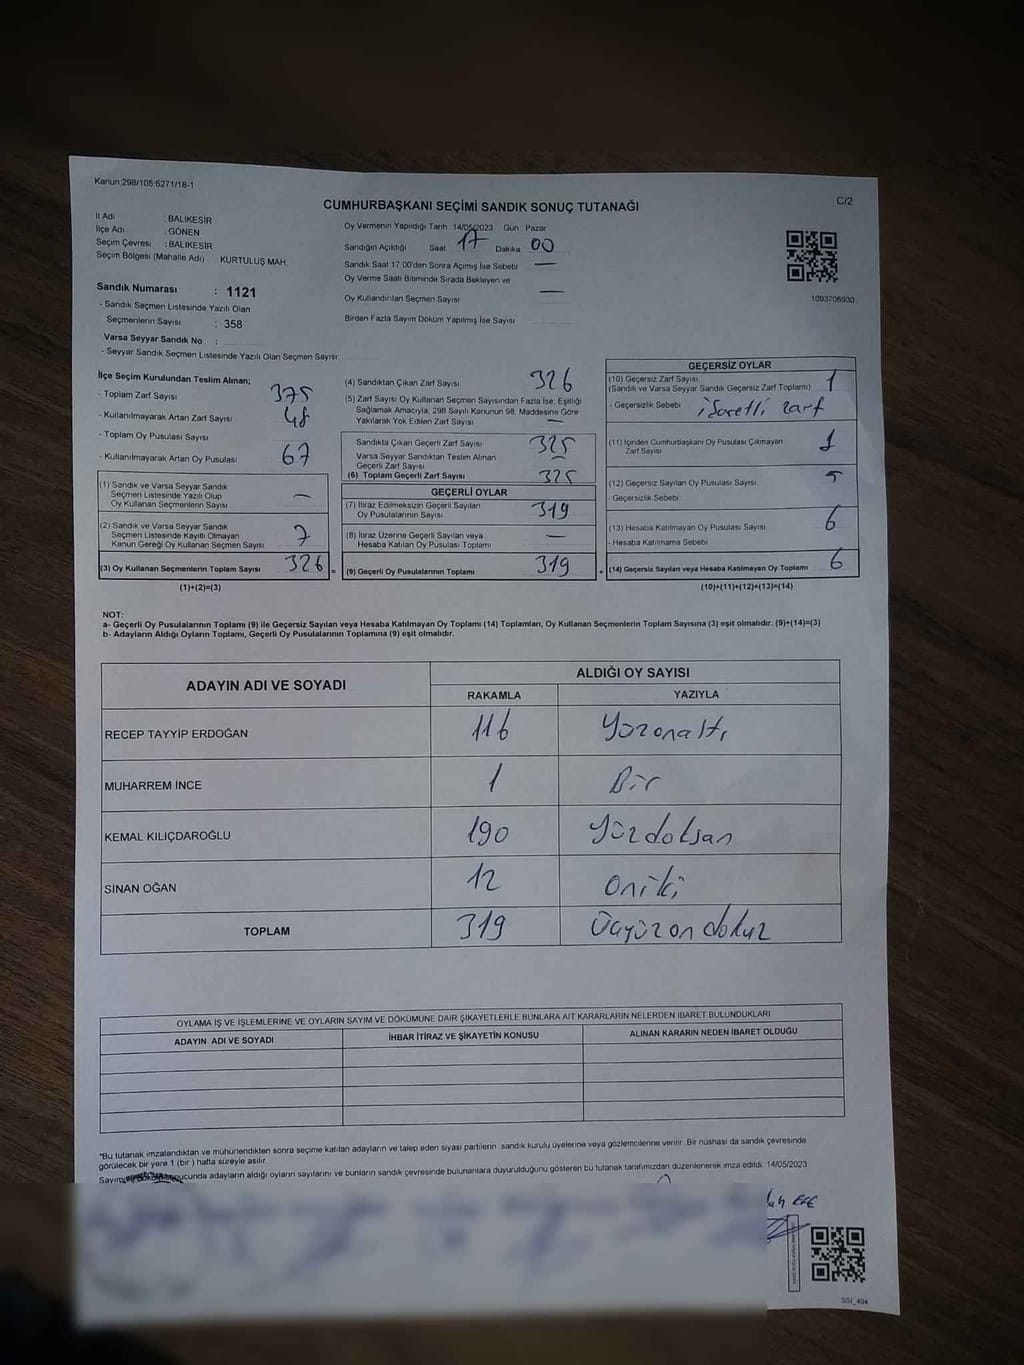 Kanun:298/105:6271/18-1
C/2
CUMHURBAŞKANI SEÇİMİ SANDIK SONUÇ TUTANAĞI
İl Adı : BALIKESİR
İlçe Adı : GÖNEN
Seçim Çevresi : BALIKESİR
Seçim Bölgesi (Mahalle Adı) KURTULUŞ MAH.
Sandık Numarası : 1121
- Sandık Seçmen Listesinde Yazılı Olan
Seçmenlerin Sayısı : 358
Varsa Seyyar Sandık No :
- Seyyar Sandık Seçmen Listesinde Yazılı Olan Seçmen Sayısı
Oy Vermenin Yapıldığı Tarih 14/05/2023 Gün : Pazar
Sandığın Açıldığı Saat 17 Dakika 00
Sandık Saat 17:00'den Sonra Açımış İse Sebebi —
Oy Verme Saati Bitiminde Sırada Bekleyen ve
Oy Kullandırılan Seçmen Sayısı —
Birden Fazla Sayım Döküm Yapılmış İse Sayısı
1093706930
İlçe Seçim Kurulundan Teslim Alınan;
- Toplam Zarf Sayısı 375
- Kullanılmayarak Artan Zarf Sayısı 48
- Toplam Oy Pusulası Sayısı
- Kullanılmayarak Artan Oy Pusulası 67
(1) Sandık ve Varsa Seyyar Sandık
Seçmen Listesinde Yazılı Olup
Oy Kullanan Seçmenlerin Sayısı —
(2) Sandık ve Varsa Seyyar Sandık
Seçmen Listesinde Kayıtlı Olmayan
Kanun Gereği Oy Kullanan Seçmen Sayısı 7
(3) Oy Kullanan Seçmenlerin Toplam Sayısı 326 =
(1)+(2)=(3)
(4) Sandıktan Çıkan Zarf Sayısı 326
(5) Zarf Sayısı Oy Kullanan Seçmen Sayısından Fazla İse, Eşitliği
Sağlamak Amacıyla, 298 Sayılı Kanunun 98. Maddesine Göre
Yakılarak Yok Edilen Zarf Sayısı —
Sandıkta Çıkan Geçerli Zarf Sayısı 325
Varsa Seyyar Sandıktan Teslim Alınan
Geçerli Zarf Sayısı —
(6) Toplam Geçerli Zarf Sayısı 325
GEÇERLİ OYLAR
(7) İtiraz Edilmeksizin Geçerli Sayılan
Oy Pusulalarının Sayısı 319
(8) İtiraz Üzerine Geçerli Sayılan veya
Hesaba Katılan Oy Pusulası Toplamı —
(9) Geçerli Oy Pusulalarının Toplamı 319 +
GEÇERSİZ OYLAR
(10) Geçersiz Zarf Sayısı 1
(Sandık ve Varsa Seyyar Sandık Geçersiz Zarf Toplamı)
- Geçersizlik Sebebi işaretli zarf
(11) İçinden Cumhurbaşkanı Oy Pusulası Çıkmayan
Zarf Sayısı 1
(12) Geçersiz Sayılan Oy Pusulası Sayısı 5
- Geçersizlik Sebebi
(13) Hesaba Katılmayan Oy Pusulası Sayısı 6
- Hesaba Katılmama Sebebi
(14) Geçersiz Sayılan veya Hesaba Katılmayan Oy Toplamı 6
(10)+(11)+(12)+(13)=(14)
NOT:
a- Geçerli Oy Pusulalarının Toplamı (9) ile Geçersiz Sayılan veya Hesaba Katılmayan Oy Toplamı (14) Toplamları, Oy Kullanan Seçmenlerin Toplam Sayısına (3) eşit olmalıdır. (9)+(14)=(3)
b- Adayların Aldığı Oyların Toplamı, Geçerli Oy Pusulalarının Toplamına (9) eşit olmalıdır.
ADAYIN ADI VE SOYADI ALDIĞI OY SAYISI
RAKAMLA YAZIYLA
RECEP TAYYİP ERDOĞAN 116 Yüzonaltı
MUHARREM İNCE 1 Bir
KEMAL KILIÇDAROĞLU 190 Yüzdoksan
SİNAN OĞAN 12 oniki
TOPLAM 319 Üçyüzondokuz
OYLAMA İŞ VE İŞLEMLERİNE VE OYLARIN SAYIM VE DÖKÜMÜNE DAİR ŞİKAYETLERLE BUNLARA AİT KARARLARIN NELERDEN İBARET BULUNDUKLARI
ADAYIN ADI VE SOYADI İHBAR İTİRAZ VE ŞİKAYETİN KONUSU ALINAN KARARIN NEDEN İBARET OLDUĞU
*Bu tutanak imzalandıktan ve mühürlendikten sonra seçime katılan adayların ve talep eden siyasi partilerin sandık kurulu üyelerine veya gözlemcilerine verilir. Bir nüshası da sandık çevresinde
görülecek bir yere 1 (bir ) hafta süreyle asılır.
Sayım ucunda adayların aldığı oyların sayılarını ve bunların sandık çevresinde bulunanlara duyurulduğunu gösteren bu tutanak tarafımızdan düzenlenerek imza edildi. 14/05/2023
SSI_404